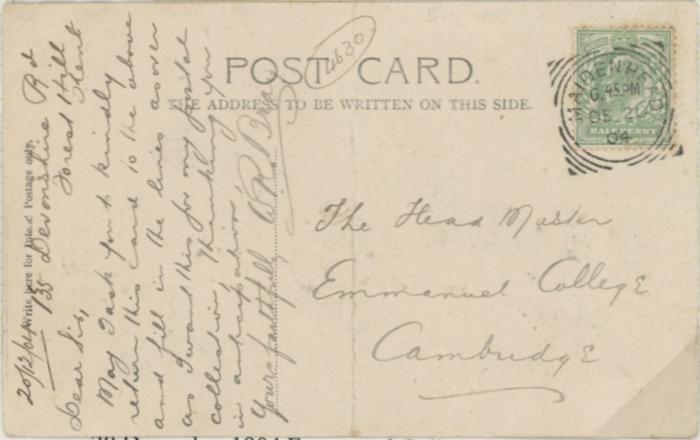 4630
POST CARD.
THE ADDRESS TO BE WRITTEN ON THIS SIDE.
MAIDENHEAD
6.45 PM
DE 20
04
HALFPENNY
The Head Master
Emmanuel College
Cambridge
Write here for Inland Postage only.
20/12/04 135 Devonshire Rd
Forest Hill
Kent
Dear Sir,
May I ask you to kindly
return this card to the above
and fill in the lines as over
as I want this for my postal
collection, thanking you
in anticipation,
Yours faithfully W R